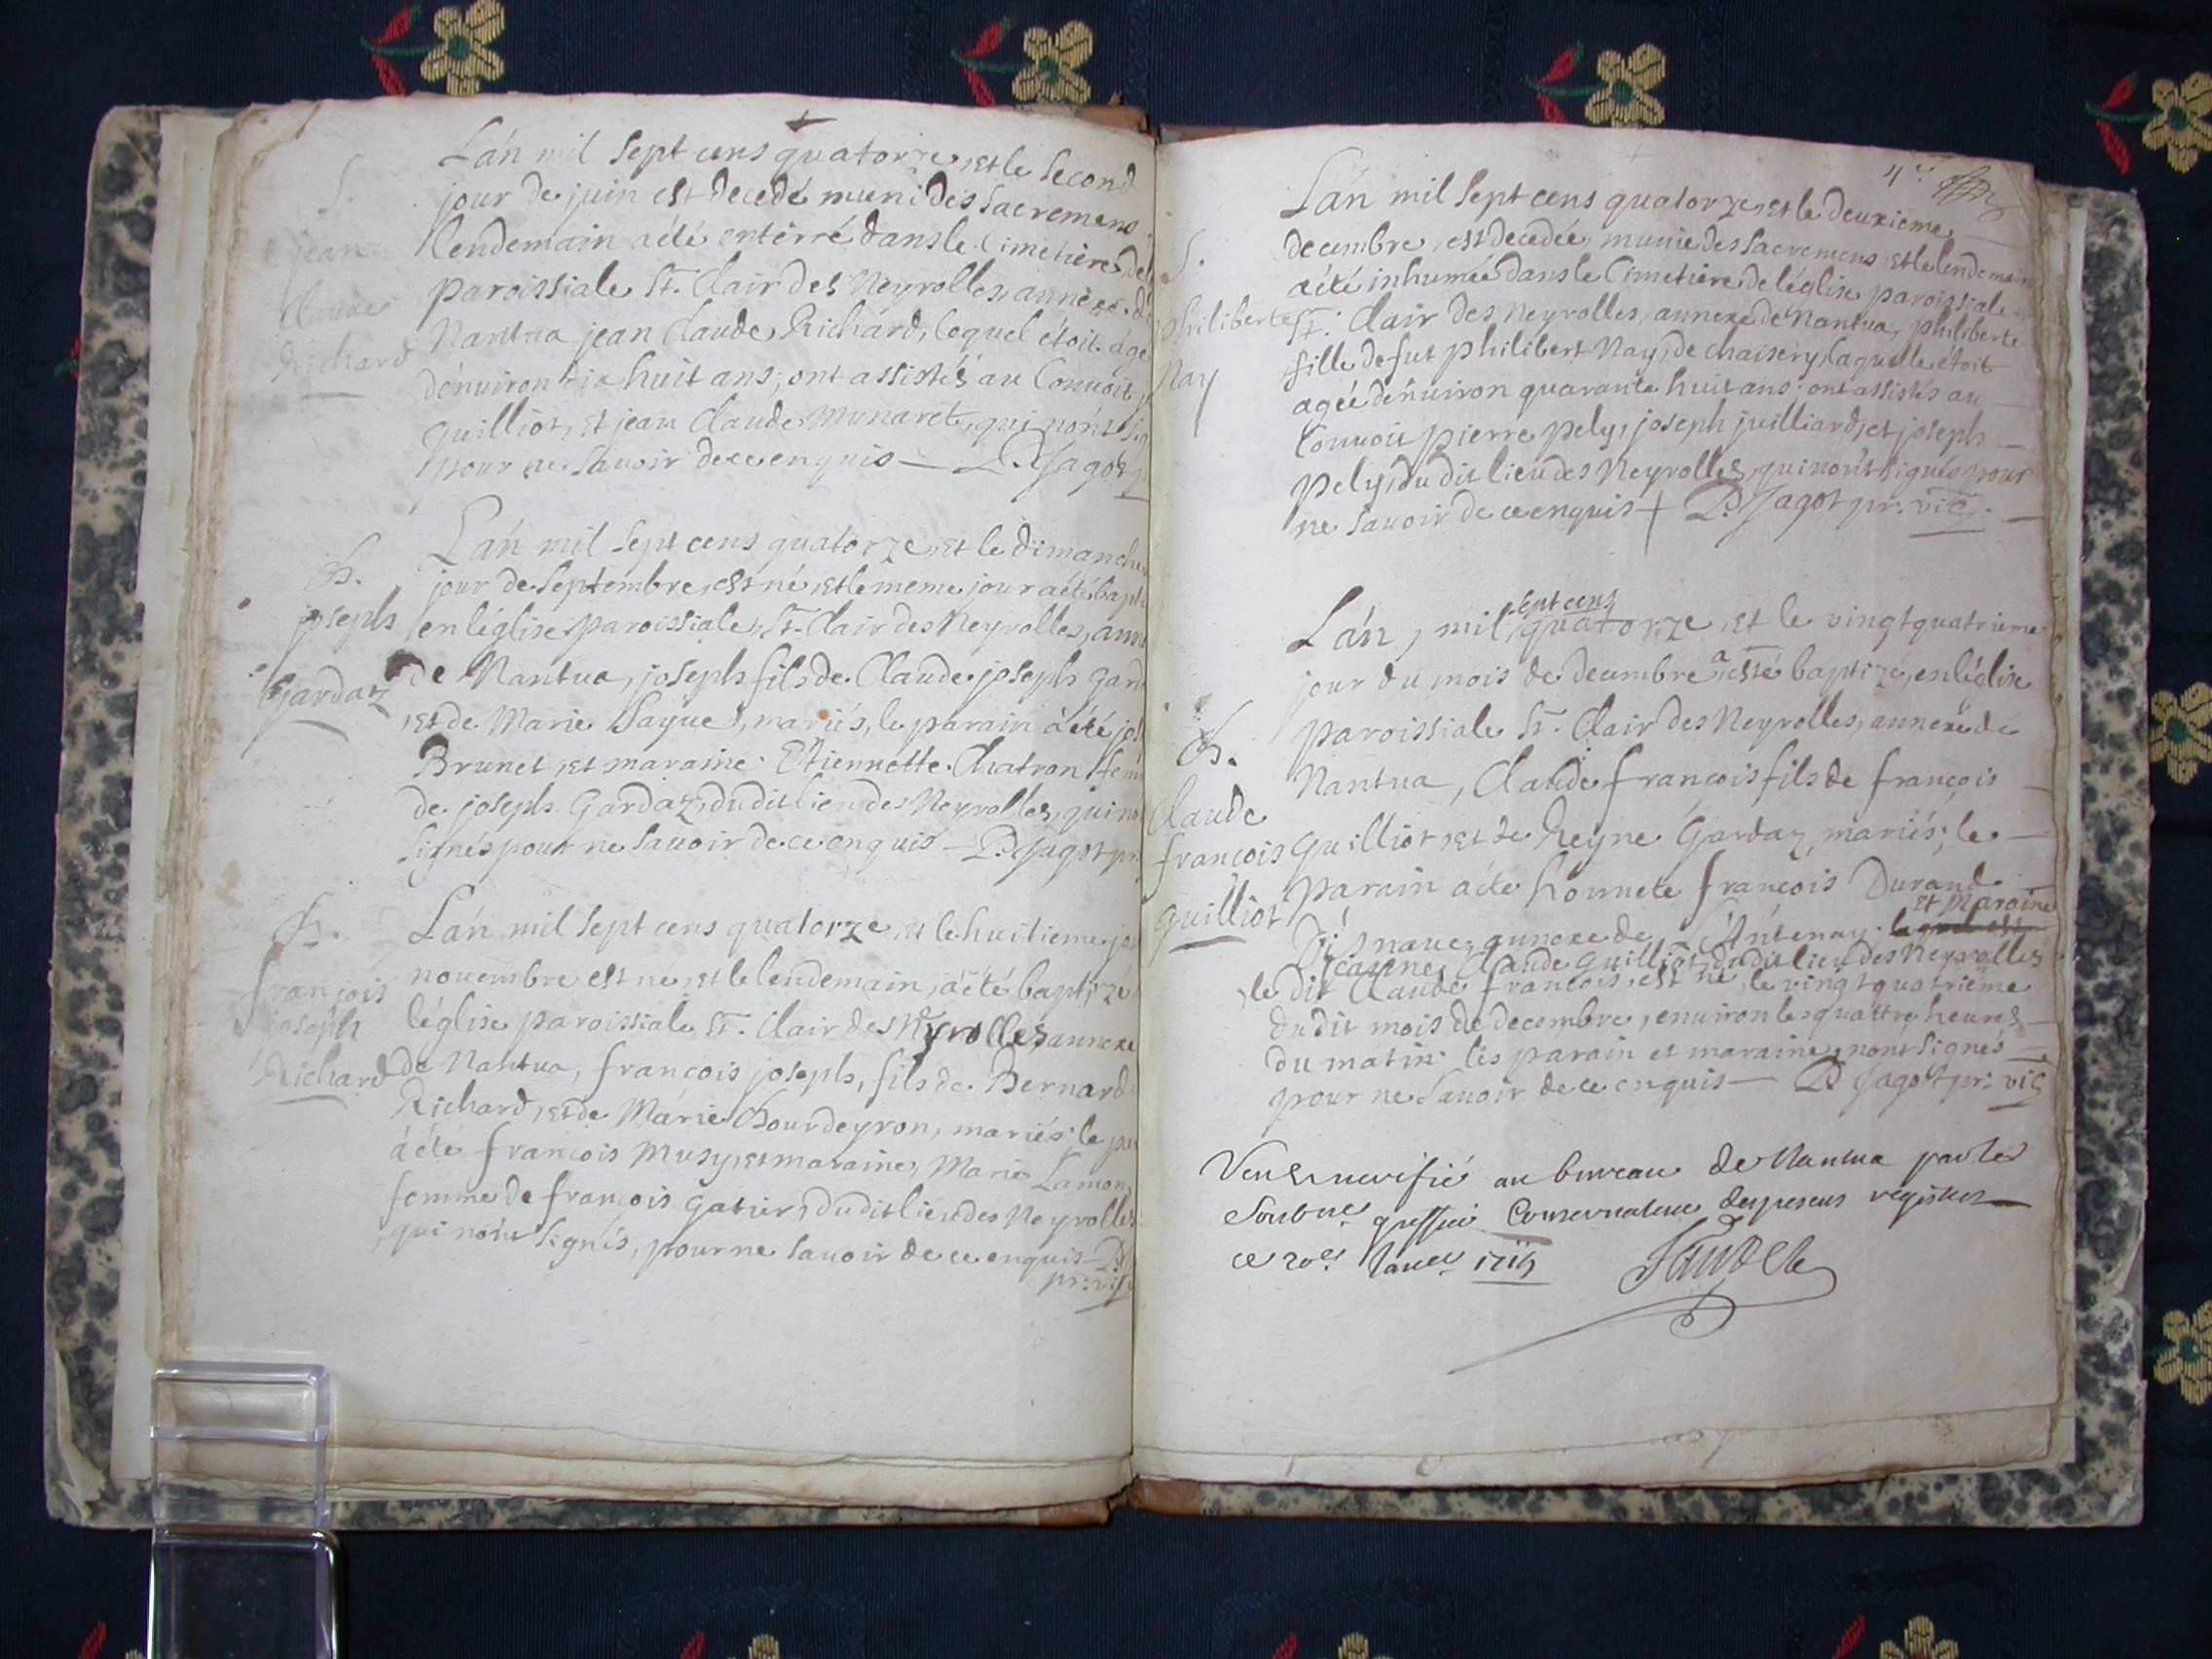 S.
jean
Claude
Richard
Lán mil sept cens quatorze, et le second
jour de juin est decedé muni des sacremens
lendemain a été enterré dans le Cimetiere de
paroissiale St. Clair des Neyrolles, annexe de
Nantua jean Claude Richard, lequel étoit age
dénuiron dix huit ans; ont assistés au Conuoit
guilliot, et jean Claude Munaret, qui nónt
pour ne sauoir de ce enquis — P. Jagot
B.
joseph
Gardaz
Lán mil sept cens quatorze, et le dimanche
jour de septembre, est né, et le meme jour a été bapt
en léglise paroissiale, St. Clair des Neyrolles, ann
de Nantua, joseph fils de Claude joseph Gard
et de Marie Sayue, mariés, le parain a été jos
Brunet, et maraine Etiennette Chatron fem
de joseph Gardaz, dudit lieu des Neyrolles, qui
signés pour ne sauoir de ce enquis — P. Jagot pr.
B.
françois
joseph
Richard
Lán mil sept cens quatorze, et le huitieme jo
nouembre est ne, et le lendemain, a été baptizé
léglise paroissiale St. Clair des Neyrolles, annexe
de Nantua, françois joseph, fils de Bernard
Richard, et de Marie Bourdeyron, mariés; le pa
a été françois Musy, et maraine, Marie Lamon
femme de françois Gatier, dudit lieu des Neyrolles
qui nónt signés, pour ne sauoir de ce enquis P.
pr: vic
4e
S.
philiberte
Nay
Lán mil sept cens quatorze, et le deuxieme
decembre, est decedée, munie des sacremens, et le lendemain
a été inhumée dans le Cimetiere de léglise paroissiale
St. Clair des Neyrolles, annexe de Nantua, philiberte
fille de fut philibert Nay, de chaisery, laquelle étoit
agée dénuiron quarante huit ans; ont assistés au
Conuoit pierre pely, joseph juilliard, et joseph
pely, dudit lieu des Neyrolles, qui nónt signés pour
ne sauoir de ce enquis + P. Jagot pr: vic.
B.
Claude
françois
guilliot
sept cens
Lán, mil quatorze, et le vingtquatrieme
jour du mois de decembre a esté baptizé, en léglise
paroissiale St. Clair des Neyrolles, annexe de
Nantua, Claude françois fils de françois
Guilliot, et de Reyne Gardaz, mariés; le
parain a été honnete françois Durand
et Maraine
annexe de
jeanne Claude guilliot, dudit lieu des Neyrolles
le dit Claude francois, est né, le vingt quatrieme
dudit mois de decembre, enuiron les quattre heures
du matin: les parain et maraine, nont signés
pour ne sauoir de ce enquis — P. Jagot pr: vic
Veu & uerifié au bureau de Nantua par les
greffier Conseruateur des presens registres
ce 20e Januer